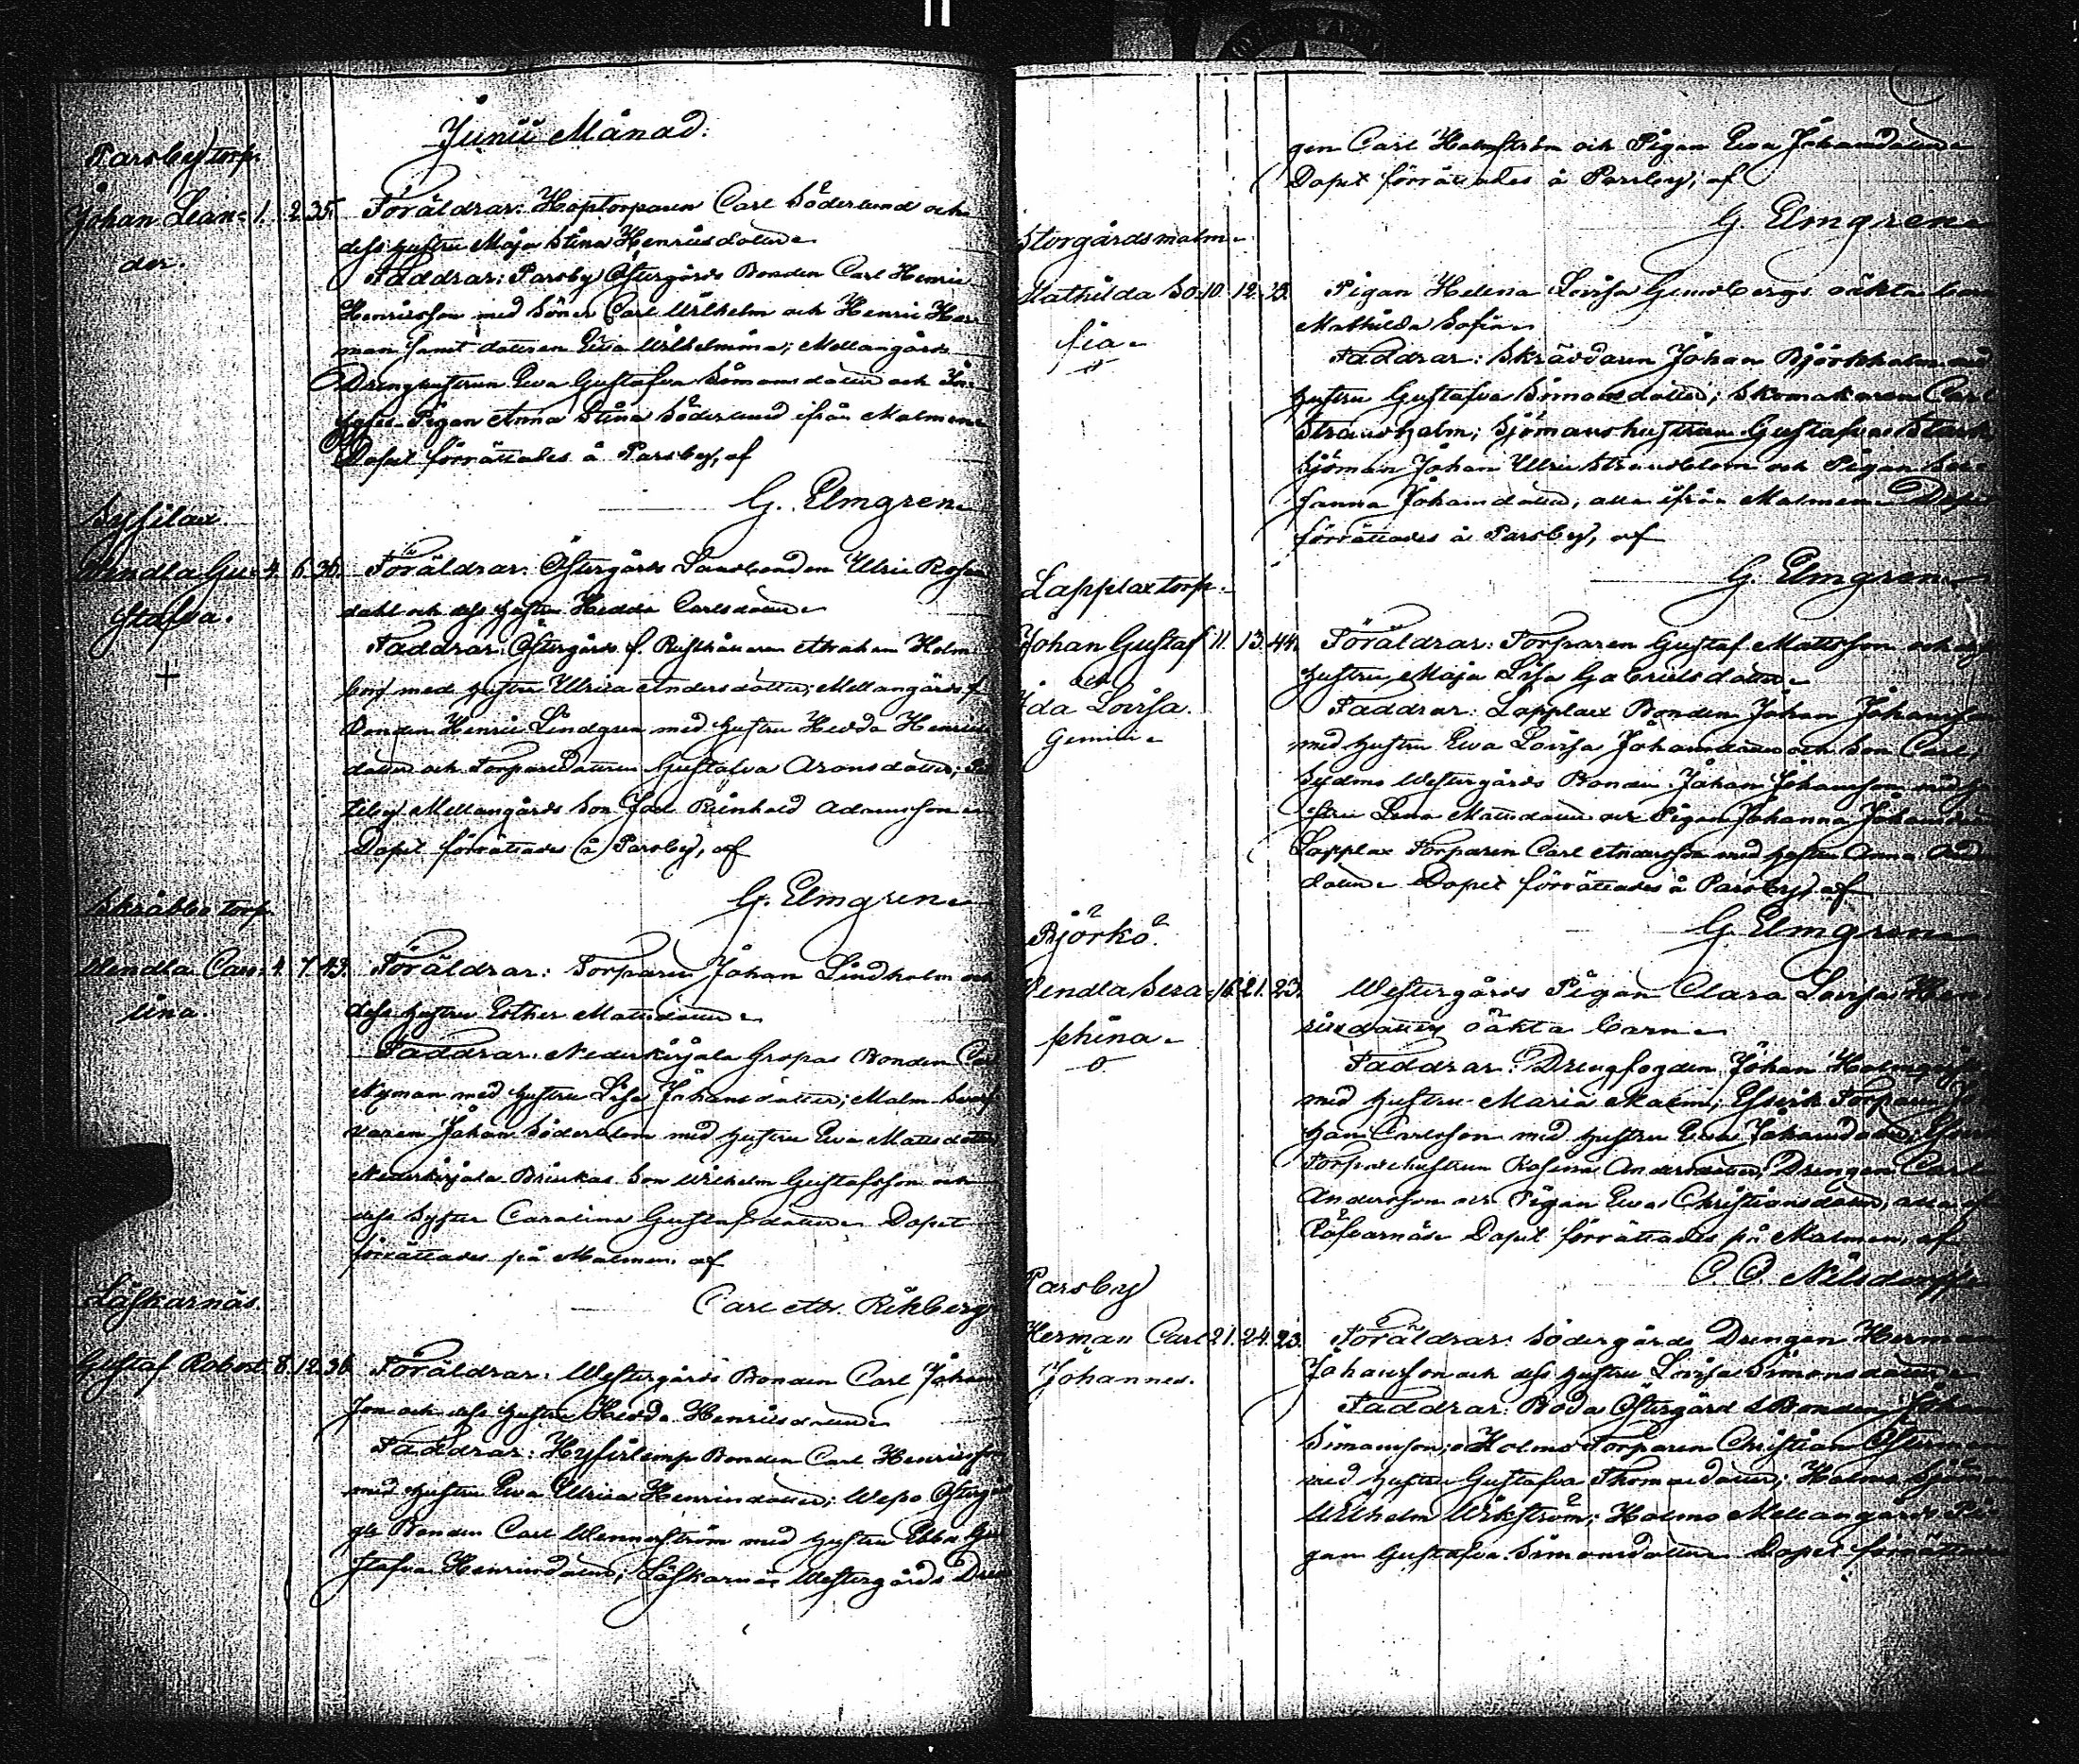 Junii Månad.
Parsby torp.
Johan Lean= 1. 2. 35. Föräldrar: Hoptorparen Carl Söderlund och
der. dess hustru Maja Stina Henricsdotter
Faddrar: Parsby Östergårds Bonden Carl Henric
Henricsson med Söner Carl Wilhelm och Henric Her=
man samt dottren Eva Wilhelmina; Mellangårds
Drenghustrun Eva Gustafva Simonsdotter och
Pigan Anna Stina Söderlund ifrån Malmen
Dopet förrättades å Parsby, af
G. Elmgren
Wendla Gu= 4. 6. 36. Föräldrar: Östergårds Landbonden Ulric Rosen
stafva. dahl och dess hustru Hedda Carlsdotter
+
Faddrar: Östergårds f. Rusthållaren Abraham Holm
berg med hustru Ulrica Andersdotter; Mellangårds f.
Bonden Henric Lindgren med hustru Hedda Henrics
dotter och Torparedottren Gustafva Aronsdotter;
Mellangårds Son Joel Reinhold Adamsson
Dopet förrättades å Parsby, af
G. Elmgren
Skräbbo torp.
Wendla Caro= 4. 7. 43. Föräldrar: Torparen Johan Lindholm och
lina. dess hustru Esther Mattsdotter
Faddrar: Nederkirjala Gropas Bonden Carl
Nyman med hustru Lisa Johansdotter; Malm
varen Johan Söderblom med hustru Eva Mattsdotter
Nederkirjala Brinkas Son Wilhelm Gustafsson och
dess Syster Carolina Gustafsdotter Dopet
förrättades på Malmen, af
Carl Ab. Rikberg
Läskarnäs.
Gustaf Robert. 8. 12. 36. Föräldrar: Westergårds Bonden Carl Johans
son och dess hustru Hedda Henricsdotter
Faddrar: Bonden Carl Henricsson
med hustru Eva Ulrica Henricsdotter; Wepo Östergårds
Bonden Carl Wennerström med hustru Ebba Gu
stafva Henricsdotter; Läskarnäs Westergårds Dren
gen Carl Holmström och Pigan Eva Johansdotter
Dopet förrättades å Parsby, af
G. Elmgren
Storgårdsmalm
Mathilda So= 10. 12. 23. Pigan Helena Lovisa Grundbergs oäkta barn
fia Mathilda Sofia
Faddrar: Skräddaren Johan Björkholm med
hustru Gustafva Simonsdotter; Skomakaren Carl
Strandholm; Sjömanshustrun Gustafva Stark
Sjöman Johan Ulric Strandblom och Pigan Su=
sanna Johansdotter, alla ifrån Malmen Dopet
förrättades å Parsby, af
G. Elmgren
Lapplax torp.
Johan Gustaf 11. 13. 44. Föräldrar: Torparen Gustaf Mattsson och dess
och hustru Maja Lisa Gabrielsdotter
Ida Lovisa.
Gemini
Faddrar: Lapplax Bonden Johan Johansson
med hustru Eva Lovisa Johansdotter och Son Carl,
Sydmo Westergårds Bonden Johan Johansson med hu
stru Lena Mattsdotter och Pigan Johanna Johansdotter
Lapplax Torparen Carl Andersson med hustru Anna Anders
dotter Dopet förrättades å Parsby, af
G. Elmgren
Björkö.
Wendla Sera= 16. 21. 23. Westergårds Pigan Clara Lovisa Hen
phina ricsdotters oäkta barn
Faddrar: Drengfogden Johan Holmqvist
med hustru Maria Malm; Torparen Jo
han Carlsson med hustru Eva Johansdotter;
Torparehustrun Rosina Andersdotter, Drengen Carl
Andersson och Pigan Eva Christiansdotter, alla af
Dopet förrättades på Malmen, af
Parsby
Herman Carl 21. 24. 23. Föräldrar: Södergårds Drengen Herman
Johannes. Johansson och dess hustru Lovisa Simonsdotter
Faddrar: Boda Östergård Bonden Johan
Simonsson; Holmo Torparen Christian Österman
med hustru Gustafva Thomasdotter; Holmo
Wilhelm Wikström; Holmo Mellangårds Pi
gan Gustafva Simonsdotter Dopet förrättades